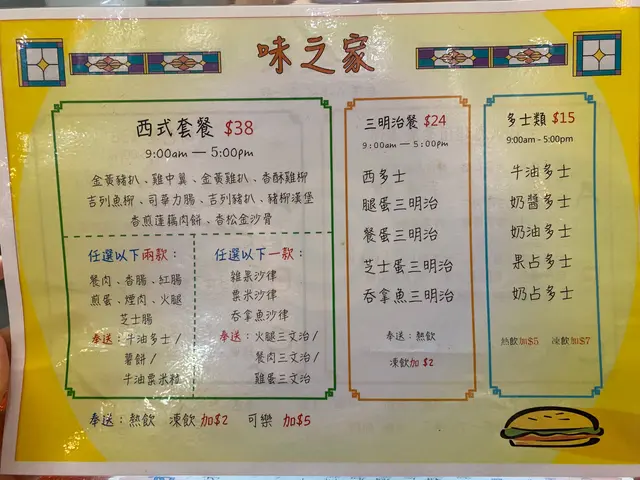 味之家
西式套餐 $38
9:00am — 5:00pm
金黃豬扒、雞中翼、金黃雞扒、香酥雞柳
吉列魚柳、司華力腸、吉列豬扒、豬柳漢堡
香煎蓮藕肉餅、香松金沙骨
任選以下兩款：
餐肉、香腸、紅腸
煎蛋、煙肉、火腿
芝士腸
奉送：牛油多士/
薯餅/
牛油粟米粒
任選以下一款：
雜果沙律
粟米沙律
吞拿魚沙律
奉送：火腿三文治/
餐肉三文治/
雞蛋三文治
奉送：熱飲 凍飲 加$2 可樂 加$5
三明治餐 $24
9:00am — 5:00pm
西多士
腿蛋三明治
餐蛋三明治
芝士蛋三明治
吞拿魚三明治
奉送：熱飲
凍飲加 $2
多士類 $15
9:00am - 5:00pm
牛油多士
奶醬多士
奶油多士
果占多士
奶占多士
熱飲加$5 凍飲加$7